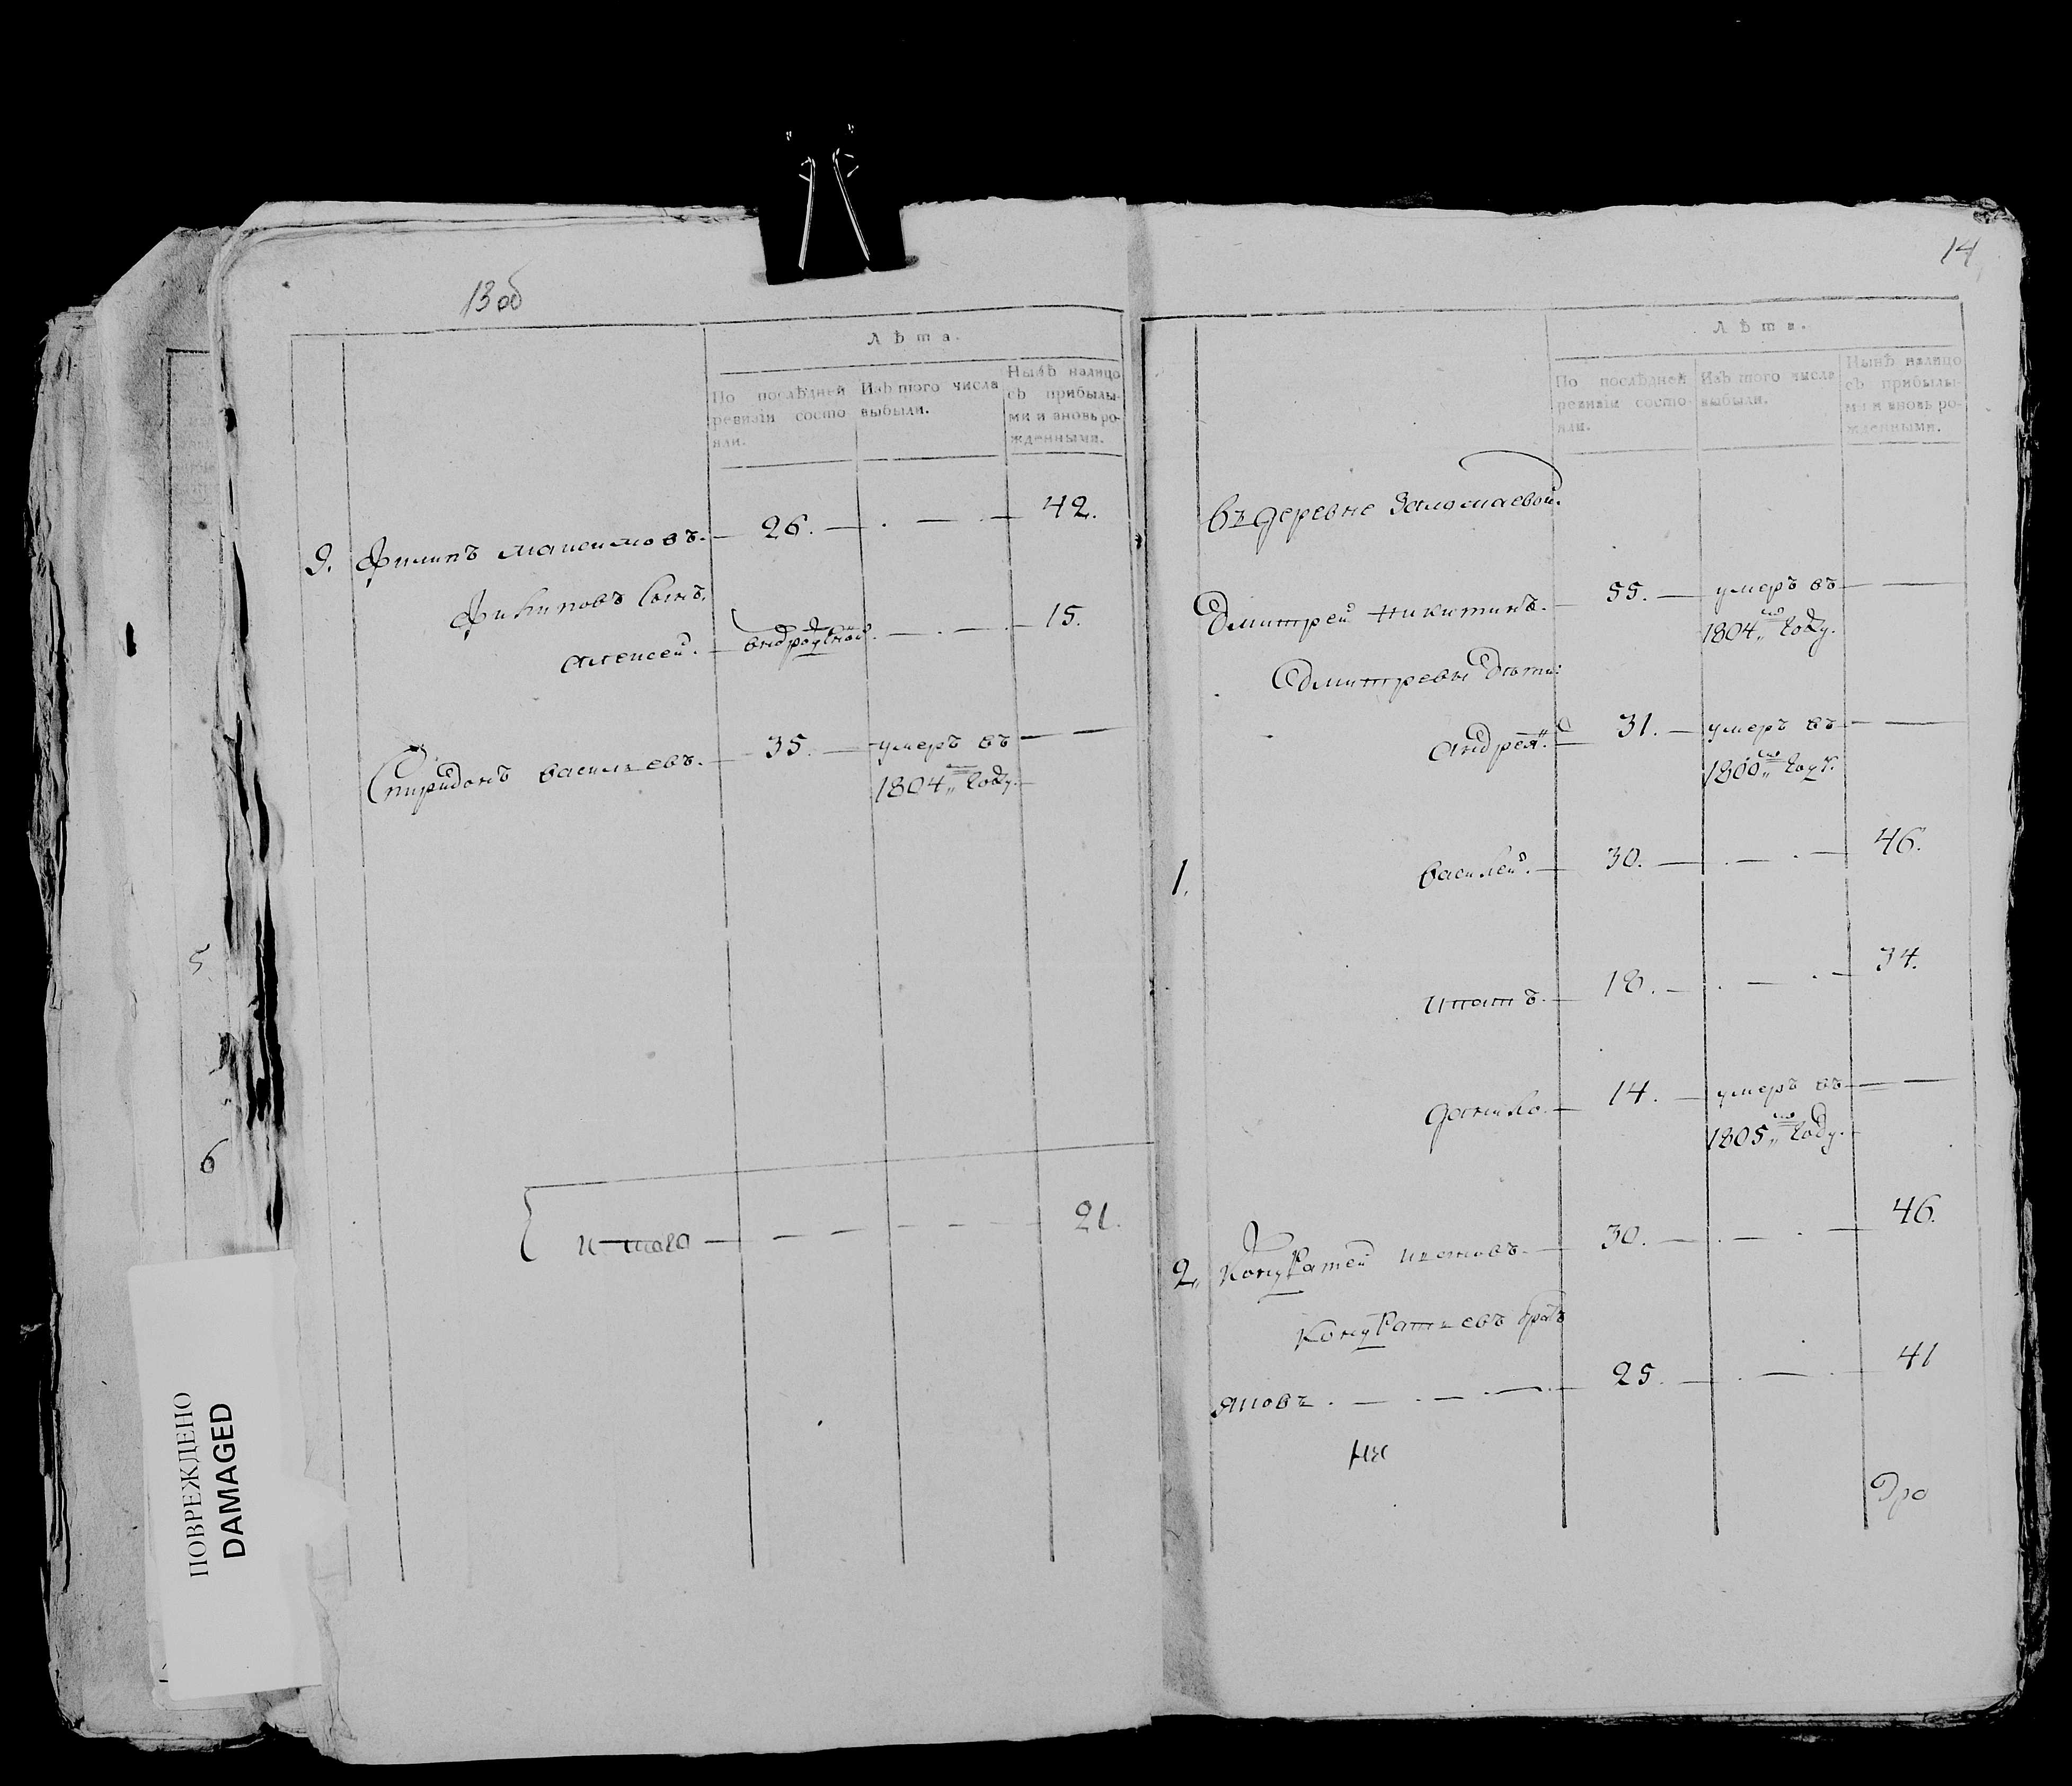 13 об
Лѣта.
По послѣдней ревизіи состояли.
Изъ того числа выбыли.
Нынѣ налицо съ прибылыми и вновь рожденными.
9. Филипъ Максимовъ. 26. 42.
Филиповъ сынъ.
Алексей. 15.
Спиридонъ Васильевъ. 35. умеръ въ
1804„мъ году.
Итого 21.
5
6
ПОВРЕЖДЕНО
DAMAGED
14
Лѣта.
По послѣдней ревизіи состояли.
Изъ того числа выбыли.
Нынѣ налицо съ прибылыми и вновь рожденными.
Въ деревне Заломаевой.
Дмитрей Никитинъ. 55. умеръ въ
1804„мъ году.
Дмитревы дѣти:
Андрей. 31. умеръ въ
1800„мъ году.
1. Василей. 30. 46.
Ипатъ. 18. 34.
Данило. 14. умеръ въ
1805„мъ году.
2. Кондратей 30. 46.
Кондратьевъ братъ
Яковъ. 25. 41